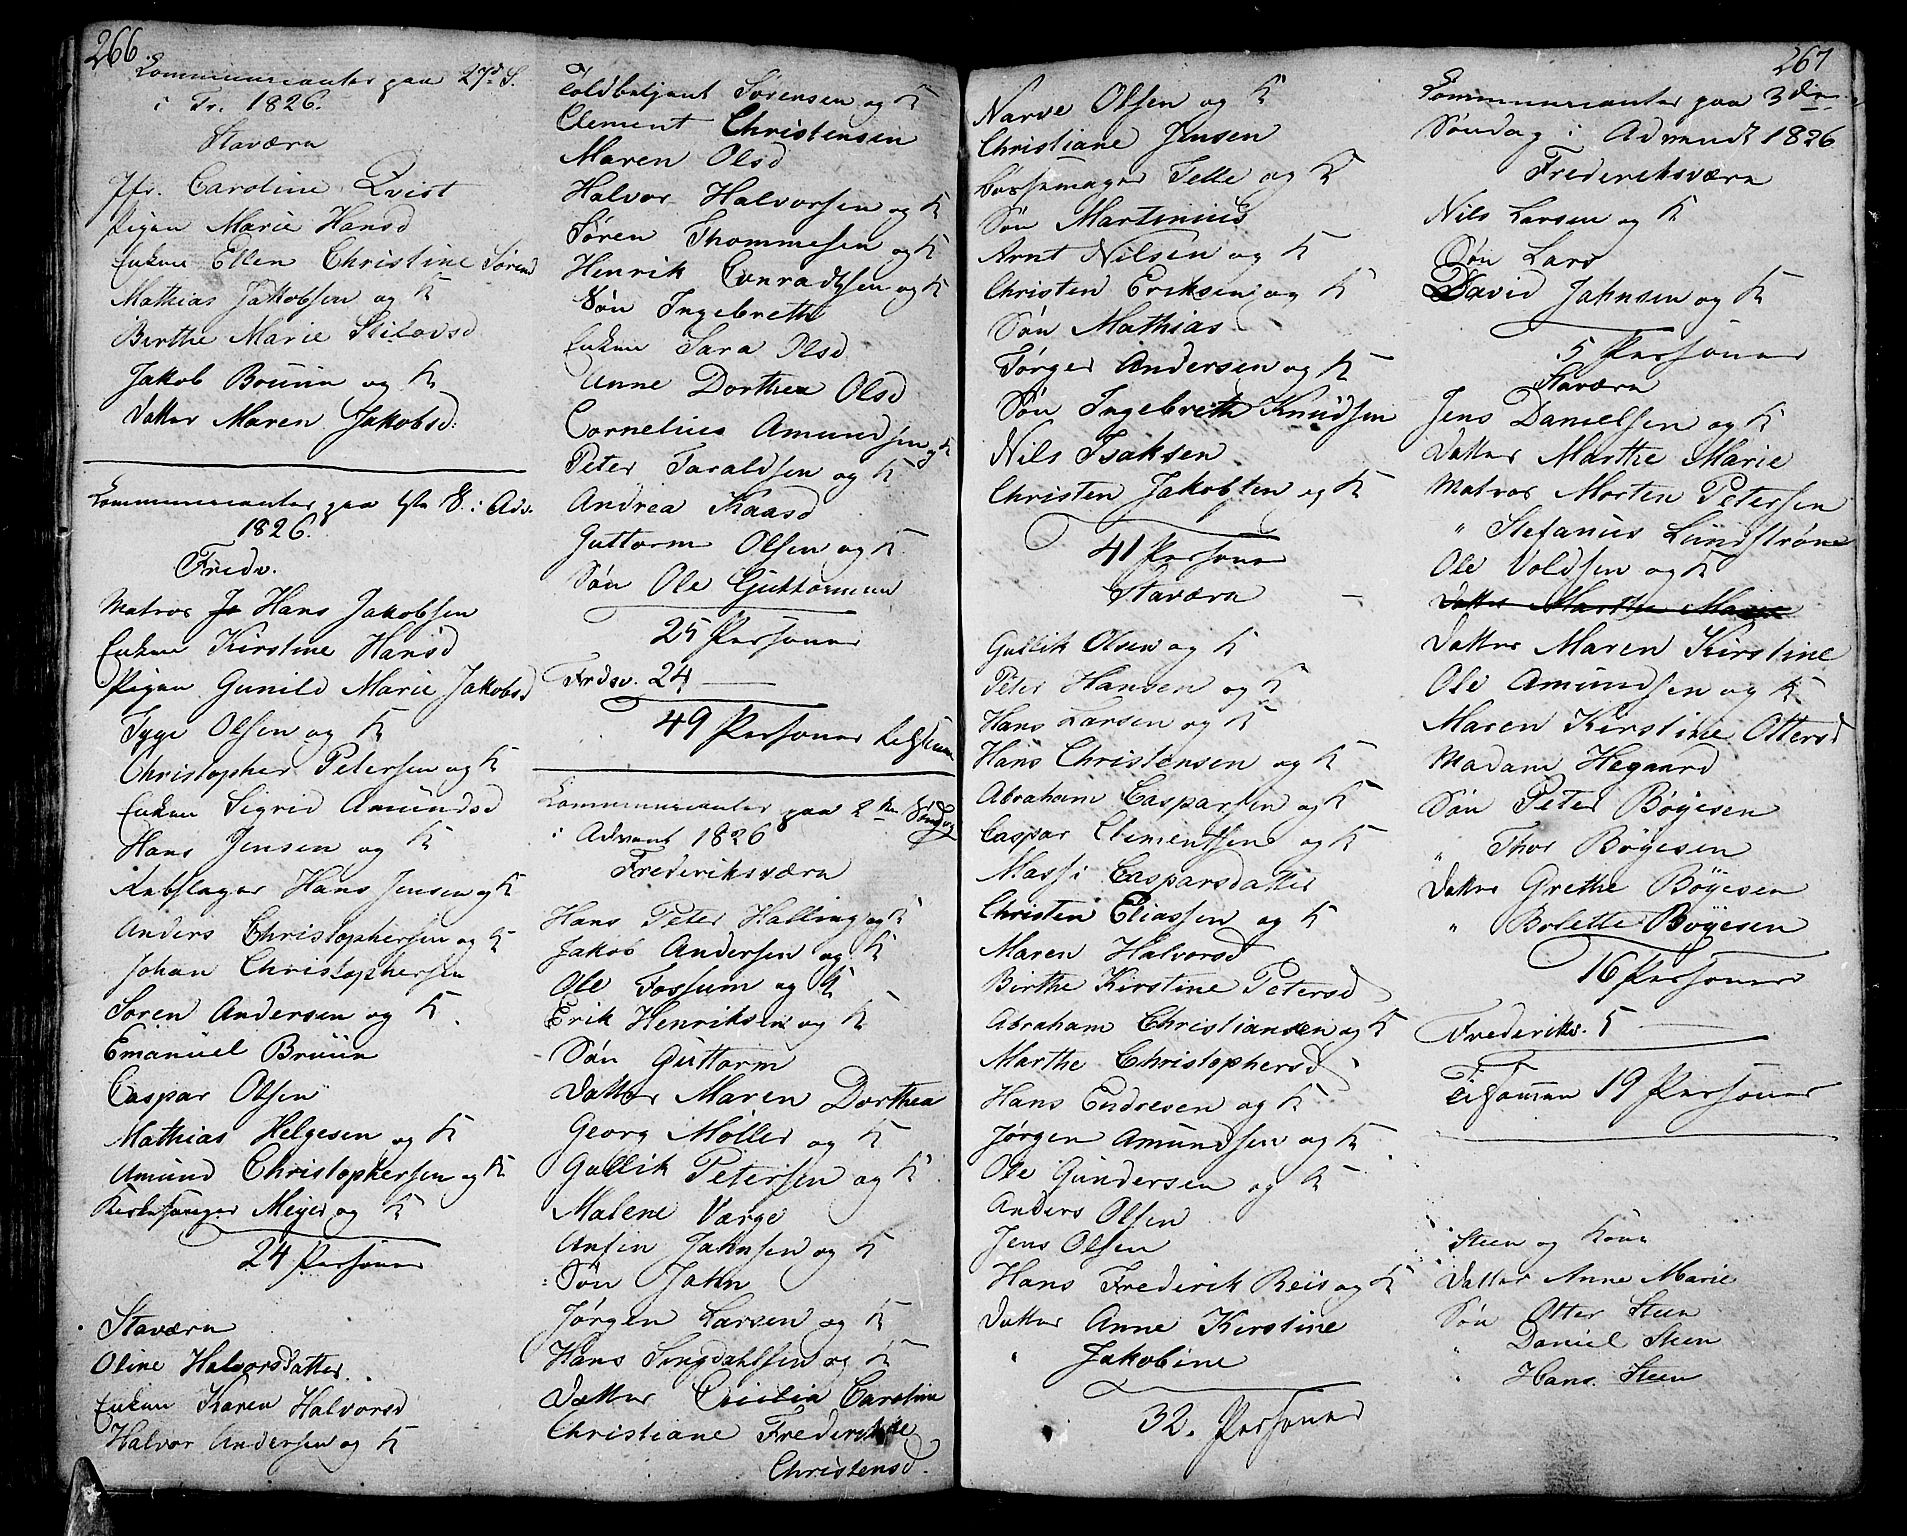 266.
Communicanter paa 27d. S.
i Tr. 1826.
Staværn
Jfr. Caroline Qvist
Pigen Marie Hansd
Enken Ellen Christine Sørend
Mathias Jakobsen og K
Birthe Marie
Jakob Bruun og K
Datter Maren Jakobsd:
Communicanter paa 1ste S. i Adv.
1826.
Fredv.
Matros Hans Jakobsen
Enken Kirstine Hansd
Pigen Gunild Marie Jakobsd
Tyge Olsen og K
Christopher Petersen og K
Enken Sigrid Amundsd
Hans Jensen og K
Rebslager Hans Jensen og K
Anders Christophersen og K
Johan Christophersen
Søren Andersen og K.
Emanuel Bruun
Caspar Olsen
Mathias Helgesen og K
Amund Christophersen og K
Meyer og K
24 Personer
Staværn
Oline Halvorsdatter.
Enken Karen Halvorsd
Halvor Andersen og K
Toldbetjent Sørensen og K
Clement Christensen
Maren Olsd
Halvor Halvorsen og K
Søren Thommesen og K
Henrik Conradsen og K
Søn Ingebreth
Enken Sara Olsd
Anne Dorthea Olsd
Cornelius Amundsen og K
Peter Taraldsen og K
Andrea Kaasd
Guttorm Olsen og K
Søn Ole Guttormsen
25 Personer
Fredsv. 24 —
49 Personer tilsamen
Communicanter paa 2den Søndag
i Advent 1826
Frederiksværn
Hans Peter Halling og K
Jakob Andersen og K
Ole Fossum og K
Erik Henriksen og K
Søn Guttorm
Datter Maren Dorthea
Georg Møller og K
Gullik Petersen og K
Malene Varge
Anfin Jahnsen og K
Søn Jahn
Jørgen Larsen og K
Hans Singdahlsen og K
Datter Cicilia Caroline
Christiane Frederikke
Christensd.
267
Narve Olsen og K
Christiane Jensen
Bøssemager Telle og K
Søn Martinius
Arnt Nilsen og K
Christen Eriksen og K
Søn Mathias
Jørgen Andersen og K
Søn Ingebreth Knudsen
Nils Isaksen
Christen Jakobsen og K
41 Personer
Staværn
Gullik Olsen og K
Peter Hansen og K
Hans Larsen og K
Hans Christensen og K
Abraham Casparsen og K
Caspar Clementsen og K
Massi Casparsdatter
Christen Eliassen og K
Maren Halvorsd
Birthe Kirstine Petersd
Abraham Christiansen og K
Marthe Christophersd
Hans Endresen og K
Jørgen Amundsen og K
Ole Gundersen og K
Anders Olsen
Jens Olsen
Hans Frederik Reis og K
Datter Anne Kirstine
" Jakobine
32. Personer
Communicanter paa 3die
Søndag i Advent 1826
Frederiksværn
Nils Larsen og K
Søn Lars
David Jahnsen og K
5 Personer
Staværn
Jens Danielsen og K
Datter Marthe Marie
Matros Morten Petersen
" Stefanius Lundstrøm
Ole Voldsen og K
Datter Marthe Marie
Datter Maren Kirstine
Ole Amundsen og K
Maren Kirstine Ottersd
Madam Hegaard
Søn Peter Bøyesen
" Thor Bøyesen
Datter Grethe Bøyesen
" Bolette Bøyesen
16 Personer
Frederiksv. 5 —
Tilsamen 19 Personer
Steen og Kone
Datter Anne Marie
Søn Otter Steen
" Daniel Steen
" Hans Steen